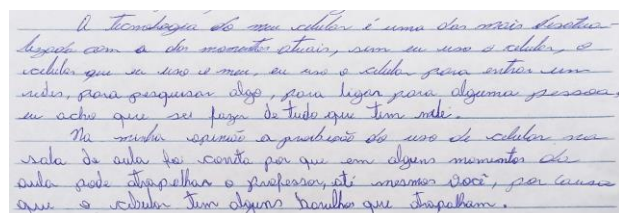 A tecnologia do meu celular é uma das mais desatua-
lizada com a dos momentos atuais, sim eu uso o celular, o
celular que eu uso é meu, eu uso o celular para entrar em
redes, para pesquisar algo, para ligar para alguma pessoa,
eu acho que sei fazer de tudo que tem nele.
Na minha opinião a proibição do uso de celular na
sala de aula foi correta por que em alguns momentos da
aula pode atrapalhar o professor, até mesmos você, por causa
que o celular tem alguns barulhos que atrapalham.